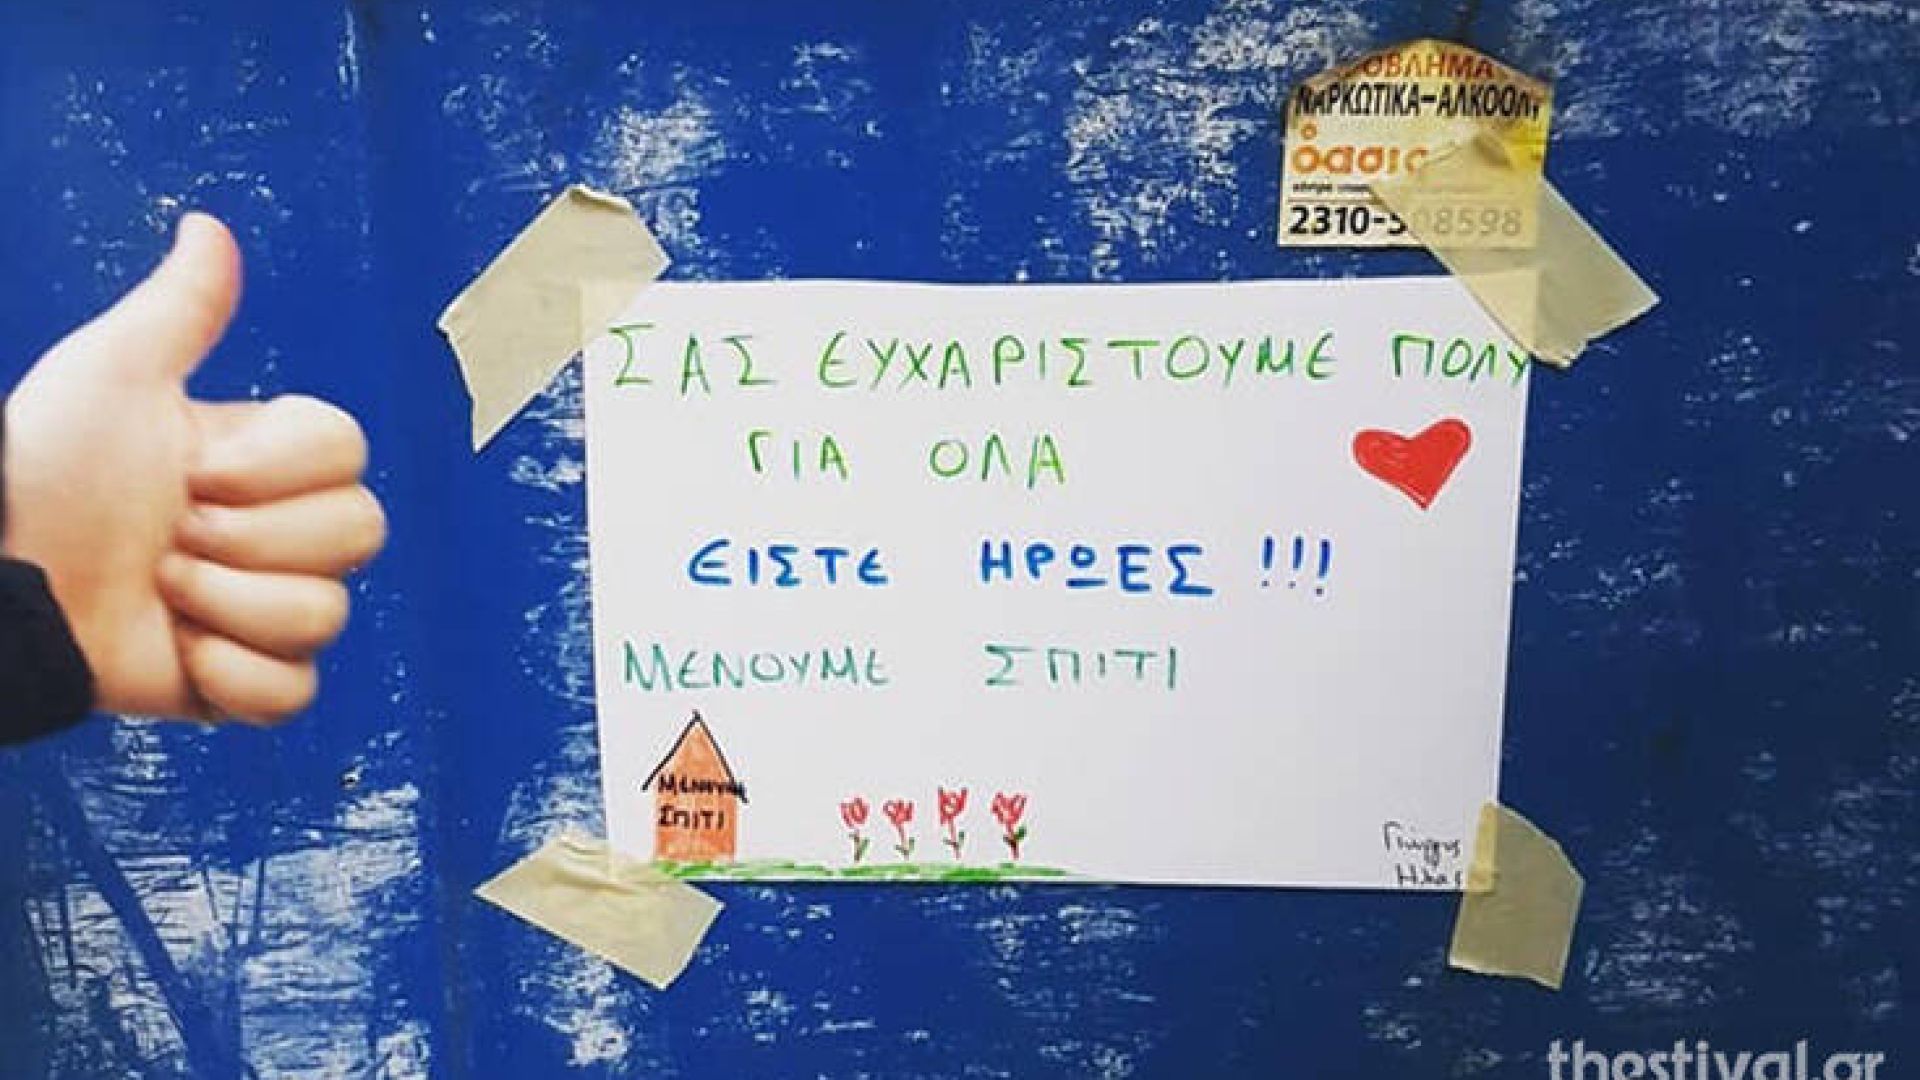 ΝΑΡΚΩΤΙΚΑ-ΑΛΚΟΟΛ
όασις
2310-508598
ΣΑΣ ΕΥΧΑΡΙΣΤΟΥΜΕ ΠΟΛΥ
ΓΙΑ ΟΛΑ
ΕΙΣΤΕ ΗΡΩΕΣ !!!
ΜΕΝΟΥΜΕ ΣΠΙΤΙ
ΜΕΝΟΥΜΕ
ΣΠΙΤΙ
Γιώργος
Ηλίας
thestival.gr